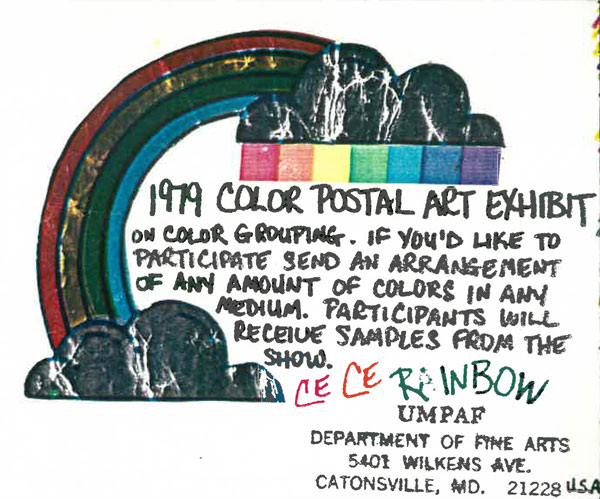 1979 COLOR POSTAL ART EXHIBIT
ON COLOR GROUPING. IF YOU'D LIKE TO
PARTICIPATE SEND AN ARRANGEMENT
OF ANY AMOUNT OF COLORS IN ANY
MEDIUM. PARTICIPANTS WILL
RECEIVE SAMPLES FROM THE
SHOW.
CE CE RAINBOW
UMPAF
DEPARTMENT OF FINE ARTS
5401 WILKENS AVE.
CATONSVILLE, MD. 21228 U.S.A